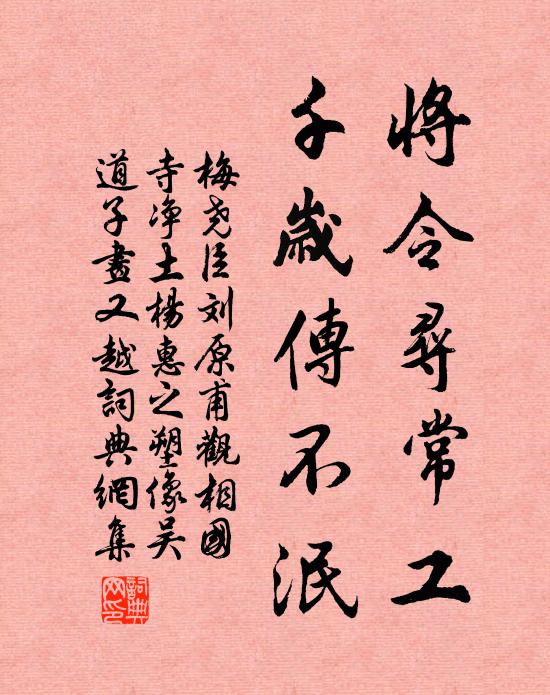 將令尋常工
千歲傳不泯
梅尧臣刘原甫觀相國
寺净土楊惠之塑像吴
道子畫又越詞典網集
詞典網印